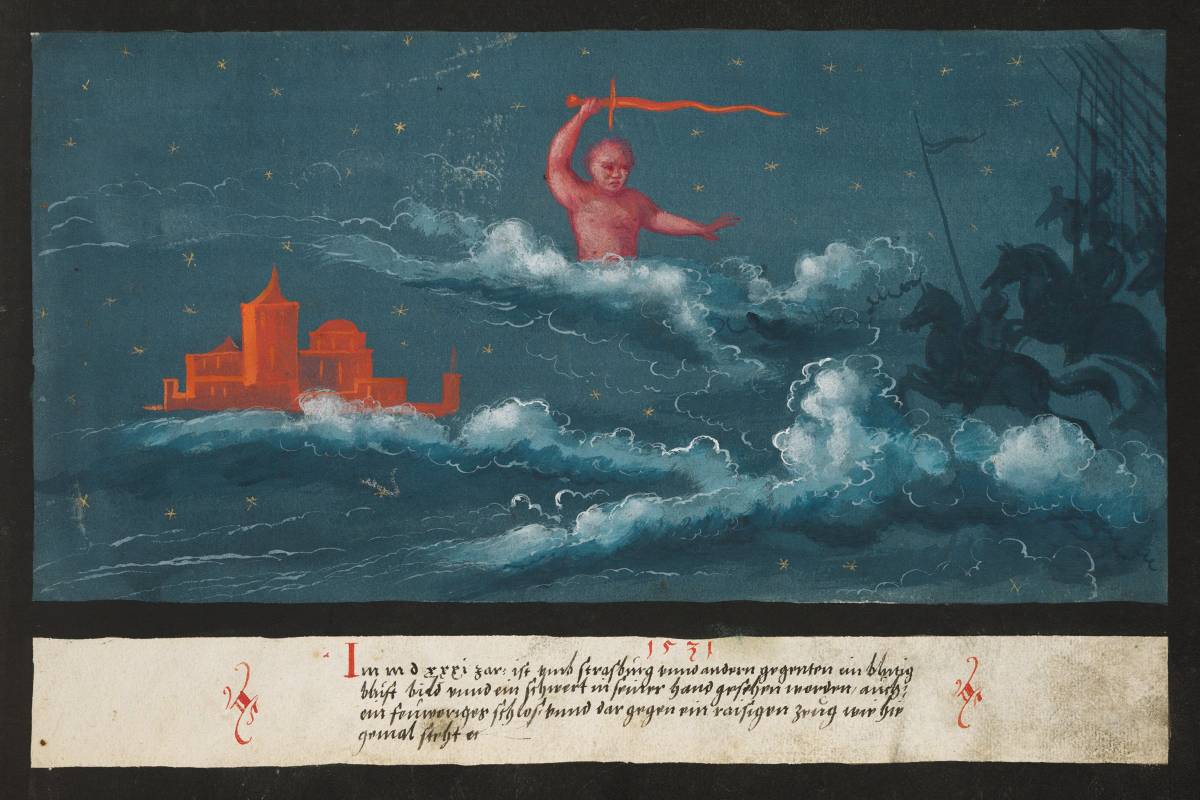 1531
Im m d xxxi Jar: ist vmb strasburg vnnd andern gegenten ein blutig
bru̇st bild vnnd ein schwert in seiner hand gesehen worden, auch
ein feuweriges schlos, vnnd dar gegen ein raisigen zeug wie hie
gemal steht etc